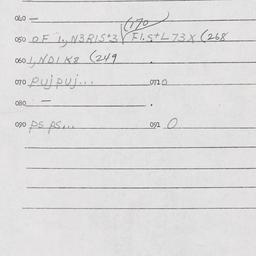 040 —
(170)
050 OF 1., N3R1S+3 √ F1.S+L73X (268
060 1, ND1K8 (249 .
070 pujpuj... 071 0
080 — .
090 ps ps... 091 0